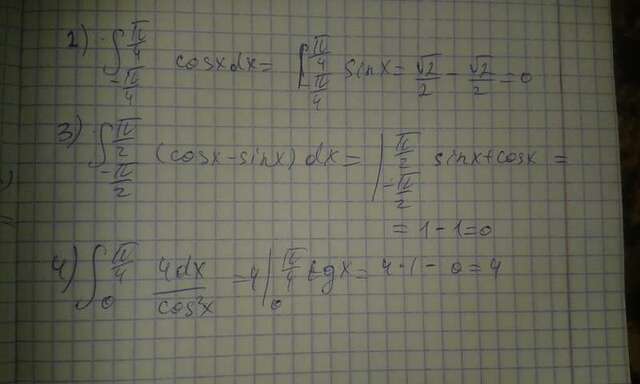 2) ∫_{-π/4}^{π/4} cosxdx= ∫_{π/4}^{π/4} sinx= √2/2 - √2/2 =0
3) ∫_{-π/2}^{π/2} (cosx-sinx) dx= |_{-π/2}^{π/2} sinx+cosx =
= 1-1=0
4) ∫_{0}^{π/4} 4dx/cos²x =4 |_{0}^{π/4} tgx= 4·1- 0=4